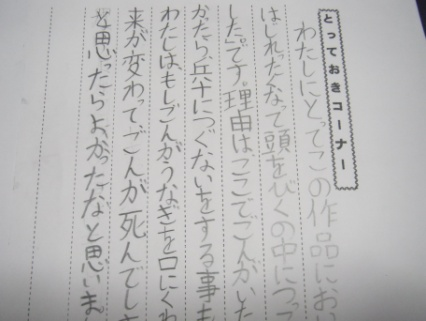 とっておきコーナー
わたしにとってこの作品におい
はじれったくなって頭をびくの中につっ
した」です。理由は、ここでごんがいた
かったら、兵十につぐないをする事も
わたしは、もしごんがうなぎを口にくわ
来が変わってごんが死んでしま
を思ったらよかったなと思いま